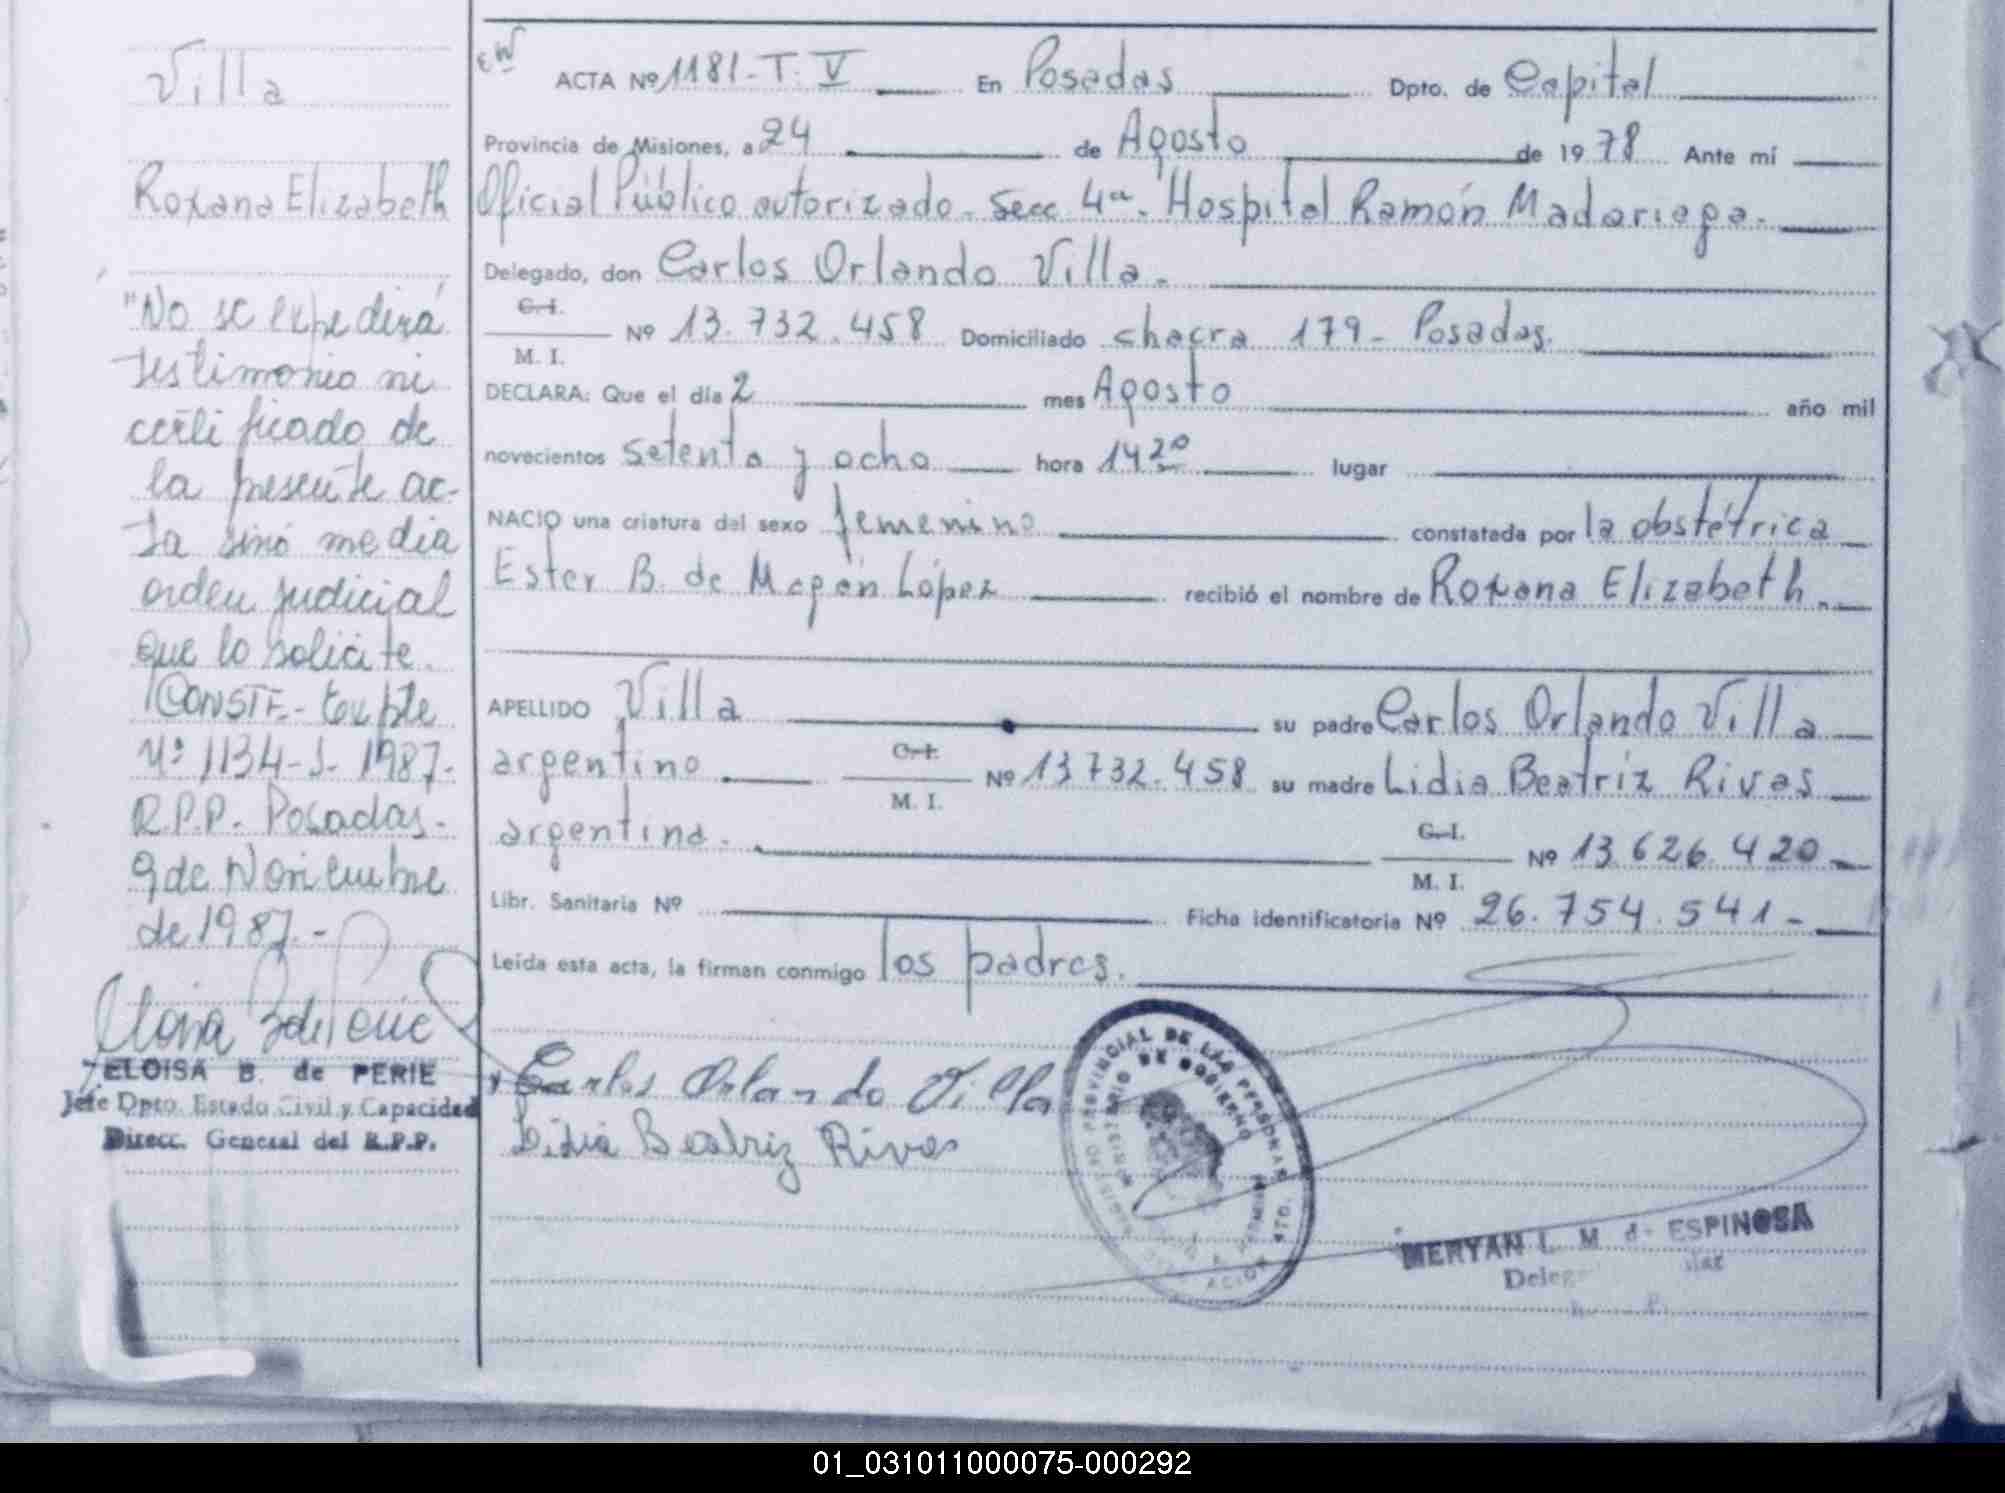 Villa
Roxana Elizabeth
"No se expedirá
testimonio ni
certificado de
la presente ac-
ta sinó media
orden judicial
que lo solicite.
CONSTE.- Expte
Nº 1134-J- 1987-
R.P.P. Posadas-
9 de Noviembre
de 1987.-
ELOISA B. de PERIE
Jefe Dpto. Estado Civil y Capacidad
Direcc. General del R.P.P.
ACTA Nº 1181-T. V En Posadas Dpto. de Capital
Provincia de Misiones, a 24 de Agosto de 1978 Ante mí
Oficial Público autorizado. Secc 4ª. Hospital Ramón Madariaga.
Delegado, don Carlos Orlando Villa.
C.I.
Nº 13.732.458 Domiciliado chacra 179- Posadas.
M. I.
DECLARA: Que el día 2 mes Agosto año mil
novecientos setenta y ocho hora 14 20 lugar
NACIO una criatura del sexo femenino constatada por la obstétrica
Ester B. de Magán López recibió el nombre de Roxana Elizabeth.
APELLIDO Villa su padre Carlos Orlando Villa
argentino C.I. Nº 13732.458 su madre Lidia Beatriz Rivas
M. I.
argentina. C.I. Nº 13.626.420
M. I.
Libr. Sanitaria Nº Ficha identificatoria Nº 26.754.541-
Leída esta acta, la firman conmigo los padres.
Carlos Orlando Villa
Lidia Beatriz Rivas
MERYAN L. M de ESPINOSA
01_031011000075-000292